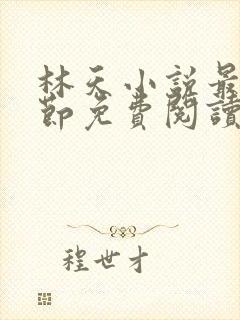 林天小說最
節免費閱讀
程世才